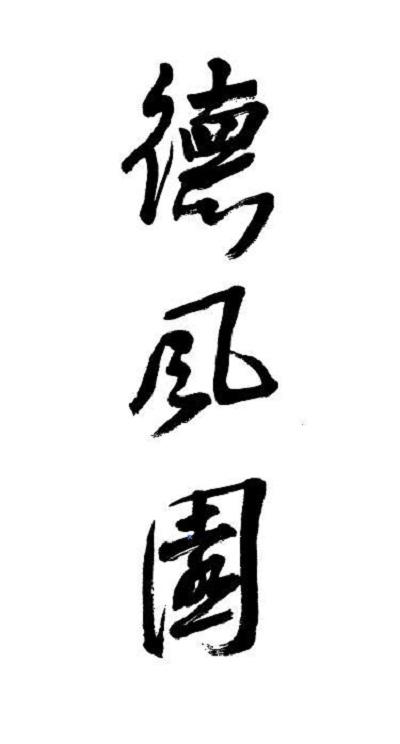 德風園